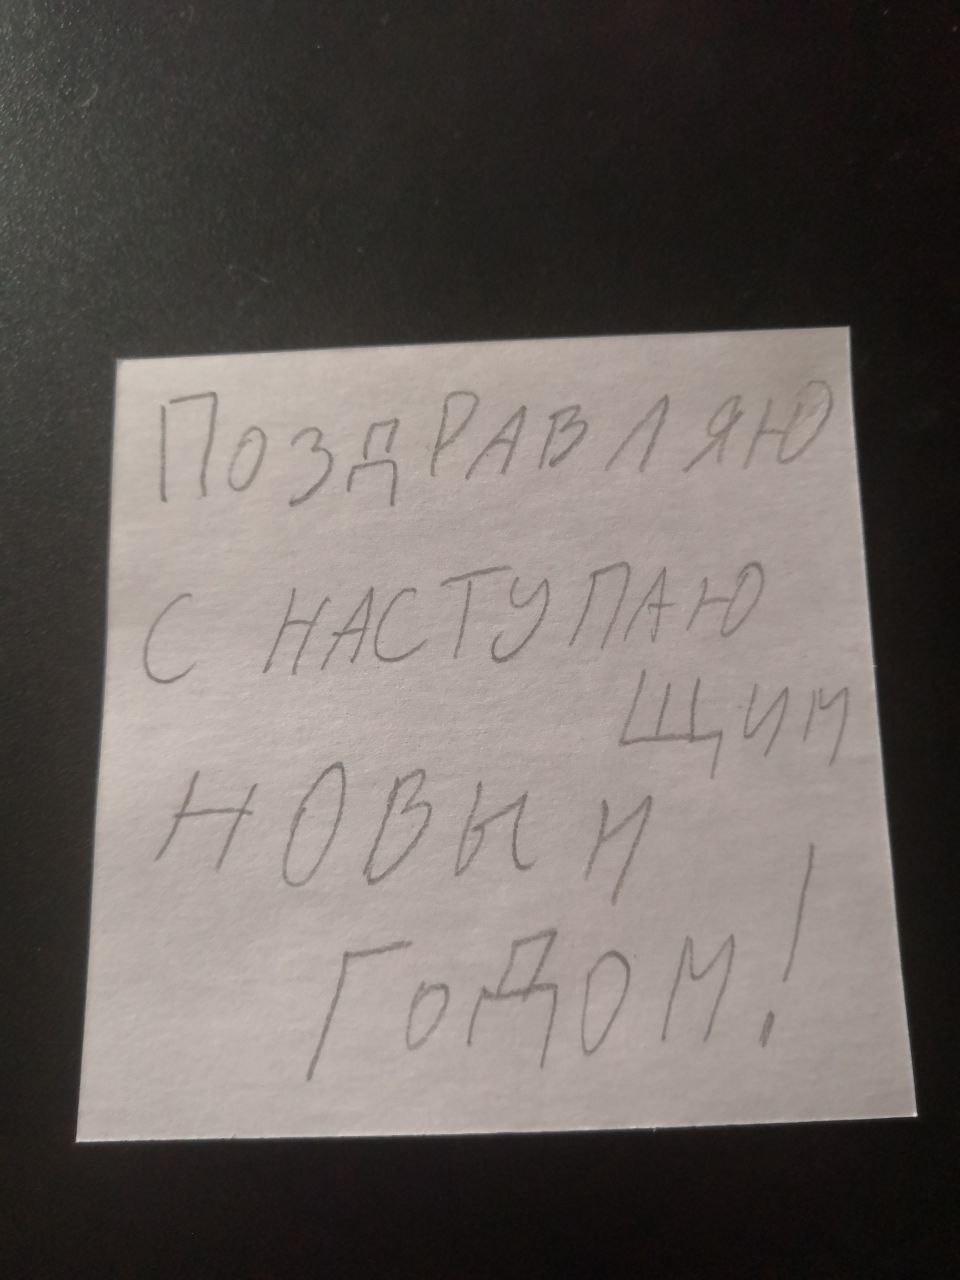 Поздравляю
с наступаю
щим
новым
годом!